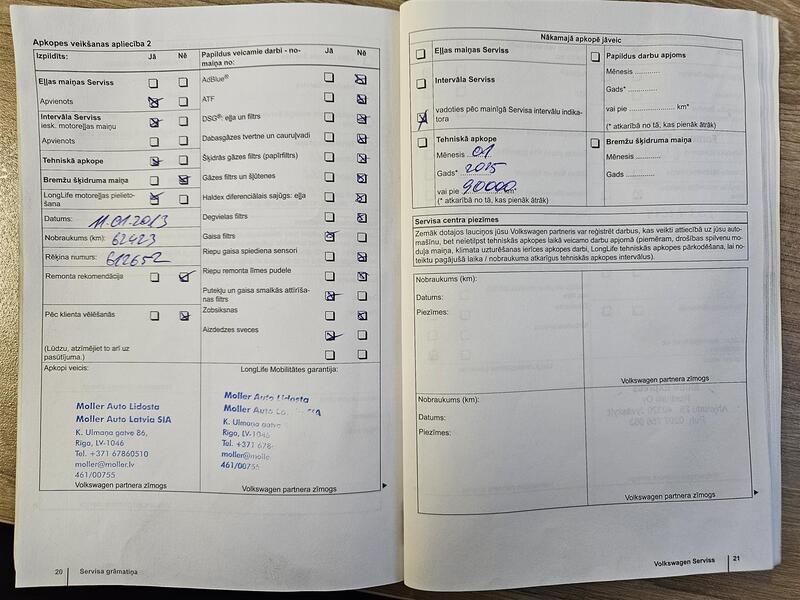 Apkopes veikšanas apliecība 2
Izpildīts: Jā Nē
Eļļas maiņas Serviss
Apvienots
Intervāla Serviss
iesk. motoreļļas maiņu
Apvienots
Tehniskā apkope
Bremžu šķidruma maiņa
LongLife motoreļļas pielieto-
šana
Datums: 11.01.2013
Nobraukums (km): 62423
Rēķina numurs: 612652
Remonta rekomendācija
Pēc klienta vēlēšanās
(Lūdzu, atzīmējiet to arī uz
pasūtījuma.)
Papildus veicamie darbi - no-
maiņa no: Jā Nē
AdBlue®
ATF
DSG®: eļļa un filtrs
Dabasgāzes tvertne un cauruļvadi
Šķidrās gāzes filtrs (papīrfiltrs)
Gāzes filtrs un šļūtenes
Haldex diferenciālais sajūgs: eļļa
Degvielas filtrs
Gaisa filtrs
Riepu gaisa spiediena sensori
Riepu remonta līmes pudele
Putekļu un gaisa smalkās attīrīša-
nas filtrs
Zobsiksnas
Aizdedzes sveces
Apkopi veicis:
Moller Auto Lidosta
Moller Auto Latvia SIA
K. Ulmaņa gatve 86,
Rīga, LV-1046
Tel. +371 67860510
moller@moller.lv
461/00755
Volkswagen partnera zīmogs
LongLife Mobilitātes garantija:
Moller Auto Lidosta
Moller Auto
K. Ulmaņa gatv
Rīga, LV-1046
Tel. +371 678
moller@molle
461/00755
Volkswagen partnera zīmogs
20 Servisa grāmatiņa
Nākamajā apkopē jāveic
Eļļas maiņas Serviss
Intervāla Serviss
vadoties pēc mainīgā Servisa intervālu indika-
tora
Tehniskā apkope
Mēnesis 01
Gads* 2015
vai pie 90000 km*
(* atkarībā no tā, kas pienāk ātrāk)
Papildus darbu apjoms
Mēnesis ............
Gads* ............
vai pie ................ km*
(* atkarībā no tā, kas pienāk ātrāk)
Bremžu šķidruma maiņa
Mēnesis ............
Gads ............
Servisa centra piezīmes
Zemāk dotajos lauciņos jūsu Volkswagen partneris var reģistrēt darbus, kas veikti attiecībā uz jūsu auto-
mašīnu, bet neietilpst tehniskās apkopes laikā veicamo darbu apjomā (piemēram, drošības spilvenu mo-
duļa maiņa, klimata uzturēšanas ierīces apkopes darbi, LongLife tehniskās apkopes pārkodēšana, lai no-
teiktu pagājušā laika / nobraukuma atkarīgus tehniskās apkopes intervālus).
Nobraukums (km):
Datums:
Piezīmes:
Volkswagen partnera zīmogs
Nobraukums (km):
Datums:
Piezīmes:
Volkswagen partnera zīmogs
Volkswagen Serviss 21